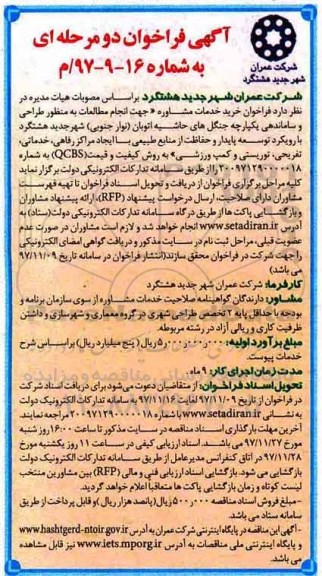 آگهی فراخوان دو مرحله ای
به شماره ۱۶-۹-۹۷/م
شرکت عمران
شهر جدید هشتگرد
شرکت عمران شهر جدید هشتگرد براساس مصوبات هیات مدیره در
نظر دارد فراخوان خرید خدمات مشاوره « جهت انجام مطالعات به منظور طراحی
و ساماندهی یکپارچه جنگل های حاشیه اتوبان (نوار جنوبی) شهر جدید هشتگرد
با رویکرد توسعه پایدار و حفاظت از منابع طبیعی با ایجاد مراکز رفاهی، خدماتی،
تفریحی، توریستی و کمپ ورزشی» به روش کیفیت و قیمت (QCBS) به شماره
را از طریق سامانه تدارکات الکترونیکی دولت برگزار نماید
کلیه مراحل برگزاری فراخوان از دریافت و تحویل اسناد فراخوان تا تهیه فهرست
مشاوران دارای صلاحیت، ارسال درخواست پیشنهاد (RFP)، ارائه پیشنهاد مشاوران
و بازگشایی پاکت ها از طریق درگاه سامانه تدارکات الکترونیکی دولت (ستاد) به
آدرس www.setadiran.ir انجام خواهد شد و لازم است مشاوران در صورت عدم
عضویت قبلی، مراحل ثبت نام در سایت مذکور و دریافت گواهی امضای الکترونیکی
را جهت شرکت در فراخوان محقق سازند (انتشار فراخوان در سامانه تاریخ ۹۷/۱۱/۰۹
می باشد)
کارفرما: شرکت عمران شهر جدید هشتگرد
مشاور: دارندگان گواهینامه صلاحیت خدمات مشاوره از سوی سازمان برنامه و
بودجه با حداقل پایه ۲ تخصص طراحی شهری در گروه معماری و شهرسازی و داشتن
ظرفیت کاری و ریالی آزاد در رشته مربوطه.
مبلغ برآورد اولیه: ۵/۰۰۰/۰۰۰/۰۰۰ ریال (پنج میلیارد ریال) براساس شرح
خدمات پیوست.
مدت زمان اجرای کار: ۹ ماه.
تحویل اسناد فراخوان: از متقاضیان دعوت می شود برای دریافت اسناد شرکت
در فراخوان از تاریخ ۹۷/۱۱/۰۹ لغایت ۹۷/۱۱/۱۶ به سامانه تدارکات الکترونیک دولت
به نشانی www.setadiran.ir با شماره مراجعه نمایند.
آخرین مهلت بارگذاری اسناد مناقصه در سایت مذکور تا ساعت ۱۶:۰۰ روز شنبه
مورخ ۹۷/۱۱/۲۷ می باشد. اسناد ارزیابی کیفی در ساعت ۱۱ روز یکشنبه مورخ
۹۷/۱۱/۲۸ در اتاق کنفرانس مدیرعامل از طریق سامانه تدارکات الکترونیک دولت
بازگشایی می شود. بازگشایی اسناد ارزیابی فنی و مالی (RFP) بین مشاورین منتخب
لیست کوتاه و زمان بازگشایی پاکت ها متعاقباً اعلام خواهد گردید.
-مبلغ فروش اسناد مناقصه ۵۰۰/۰۰۰ ریال (پانصد هزار ریال) و قابل پرداخت از طریق
سامانه ستاد می باشد.
-آگهی این مناقصه در پایگاه اینترنتی شرکت عمران به آدرس www.hashtgerd-ntoir.gov.ir
و پایگاه اینترنتی ملی مناقصات به آدرس www.iets.mporg.ir نیز قابل مشاهده
می باشد.